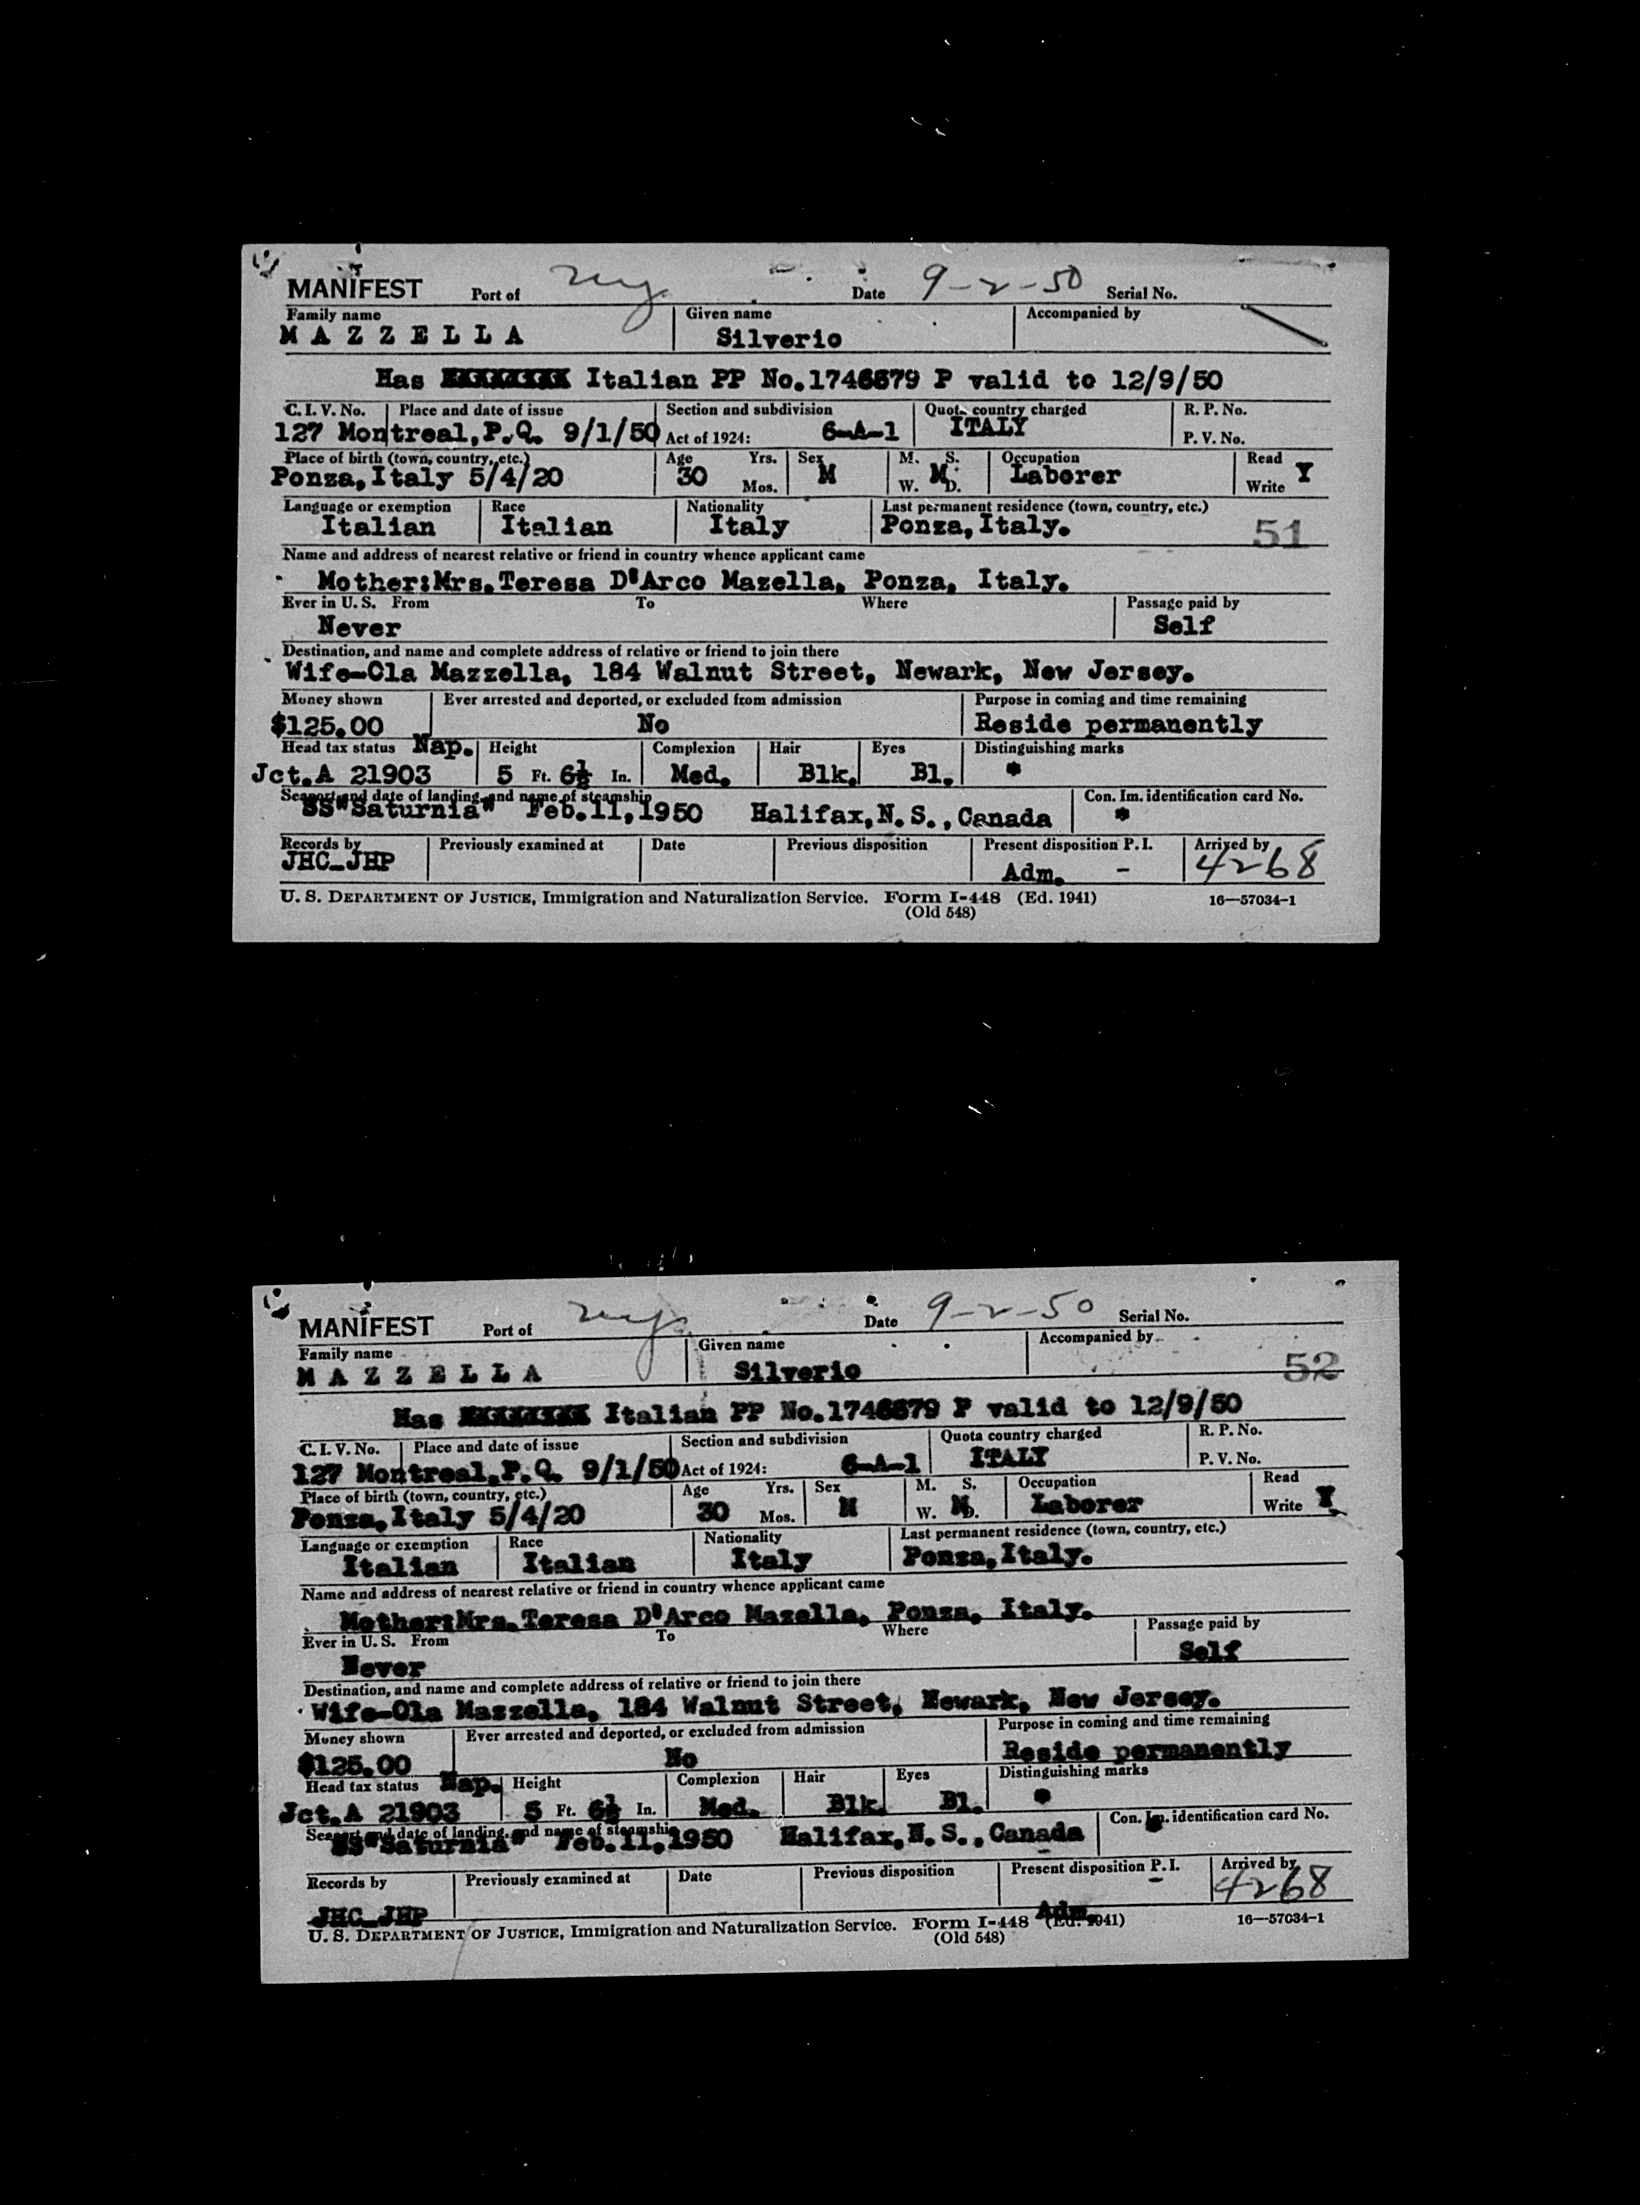 MANIFEST Port of ny Date 9-2-50 Serial No.
Family name Given name Accompanied by
MAZZELLA Silverio
Has Italian PP No.1746879 P valid to 12/9/50
C. I. V. No. Place and date of issue Section and subdivision Quota country charged R. P. No.
127 Montreal,P.Q. 9/1/50 Act of 1924: 6-A-1 ITALY P. V. No.
Place of birth (town, country, etc.) Age Yrs. Sex M. S. Occupation Read
Ponza,Italy 5/4/20 30 Mos. M W. M D. Laborer Write Y
Language or exemption Race Nationality Last permanent residence (town, country, etc.)
Italian Italian Italy Ponza,Italy. 51
Name and address of nearest relative or friend in country whence applicant came
Mother:Mrs.Teresa D'Arco Mazella, Ponza, Italy.
Ever in U. S. From To Where Passage paid by
Never Self
Destination, and name and complete address of relative or friend to join there
Wife-Ola Mazzella, 184 Walnut Street, Newark, New Jersey.
Money shown Ever arrested and deported, or excluded from admission Purpose in coming and time remaining
$125.00 No Reside permanently
Head tax status Nap. Height Complexion Hair Eyes Distinguishing marks
Jct.A 21903 5 Ft. 6½ In. Med. Blk. Bl. *
Seaport and date of landing, and name of steamship Con. Im. identification card No.
SS"Saturnia" Feb.11,1950 Halifax,N.S.,Canada *
Records by Previously examined at Date Previous disposition Present disposition P. I. Arrived by
JHC-JHP Adm. - 4268
U. S. DEPARTMENT OF JUSTICE, Immigration and Naturalization Service. Form I-448 (Ed. 1941) 16—57034-1
(Old 548)
MANIFEST Port of ny Date 9-2-50 Serial No.
Family name Given name Accompanied by
MAZZELLA Silverio 52
Has Italian PP No.1746879 P valid to 12/9/50
C. I. V. No. Place and date of issue Section and subdivision Quota country charged R. P. No.
127 Montreal,P.Q. 9/1/50 Act of 1924: 6-A-1 ITALY P. V. No.
Place of birth (town, country, etc.) Age Yrs. Sex M. S. Occupation Read
Ponza,Italy 5/4/20 30 Mos. M W. M D. Laborer Write Y
Language or exemption Race Nationality Last permanent residence (town, country, etc.)
Italian Italian Italy Ponza,Italy.
Name and address of nearest relative or friend in country whence applicant came
Mother:Mrs.Teresa D'Arco Mazella, Ponza, Italy.
Ever in U. S. From To Where Passage paid by
Never Self
Destination, and name and complete address of relative or friend to join there
Wife-Ola Mazzella, 184 Walnut Street, Newark, New Jersey.
Money shown Ever arrested and deported, or excluded from admission Purpose in coming and time remaining
$125.00 No Reside permanently
Head tax status Nap. Height Complexion Hair Eyes Distinguishing marks
Jct.A 21903 5 Ft. 6½ In. Med. Blk. Bl. *
Seaport and date of landing, and name of steamship Con. Im. identification card No.
SS"Saturnia" Feb.11,1950 Halifax,N.S.,Canada
Records by Previously examined at Date Previous disposition Present disposition P. I. Arrived by
JHC-JHP Adm. - 4268
U. S. DEPARTMENT OF JUSTICE, Immigration and Naturalization Service. Form I-448 (Ed. 1941) 16—57034-1
(Old 548)